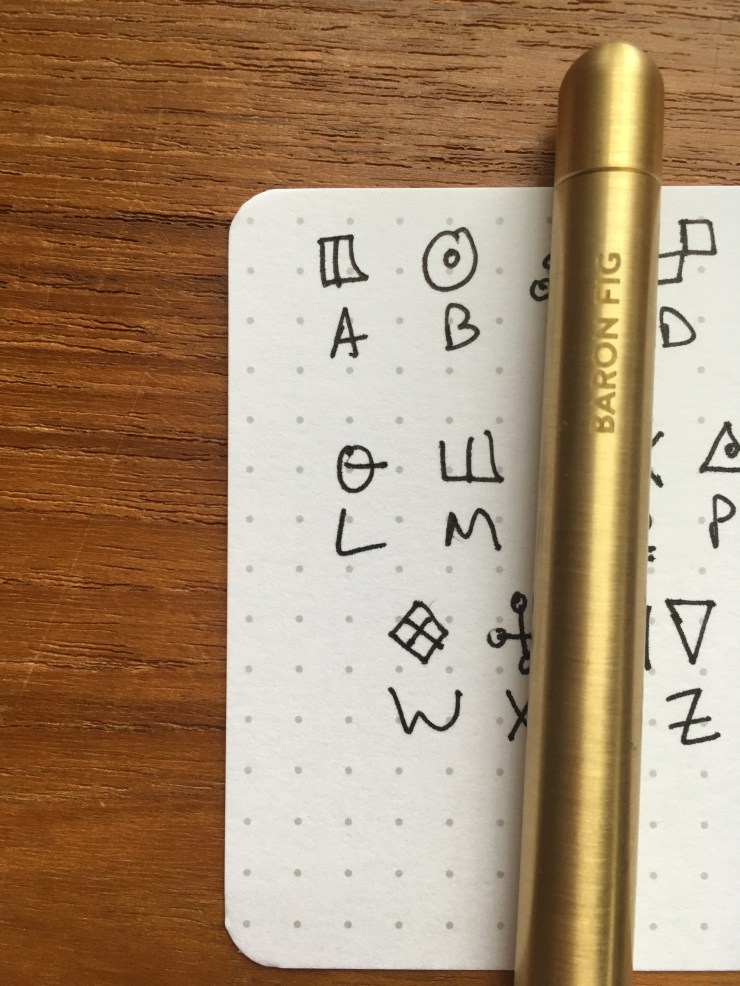 A B D
L M P
W X Z
BARON FIG